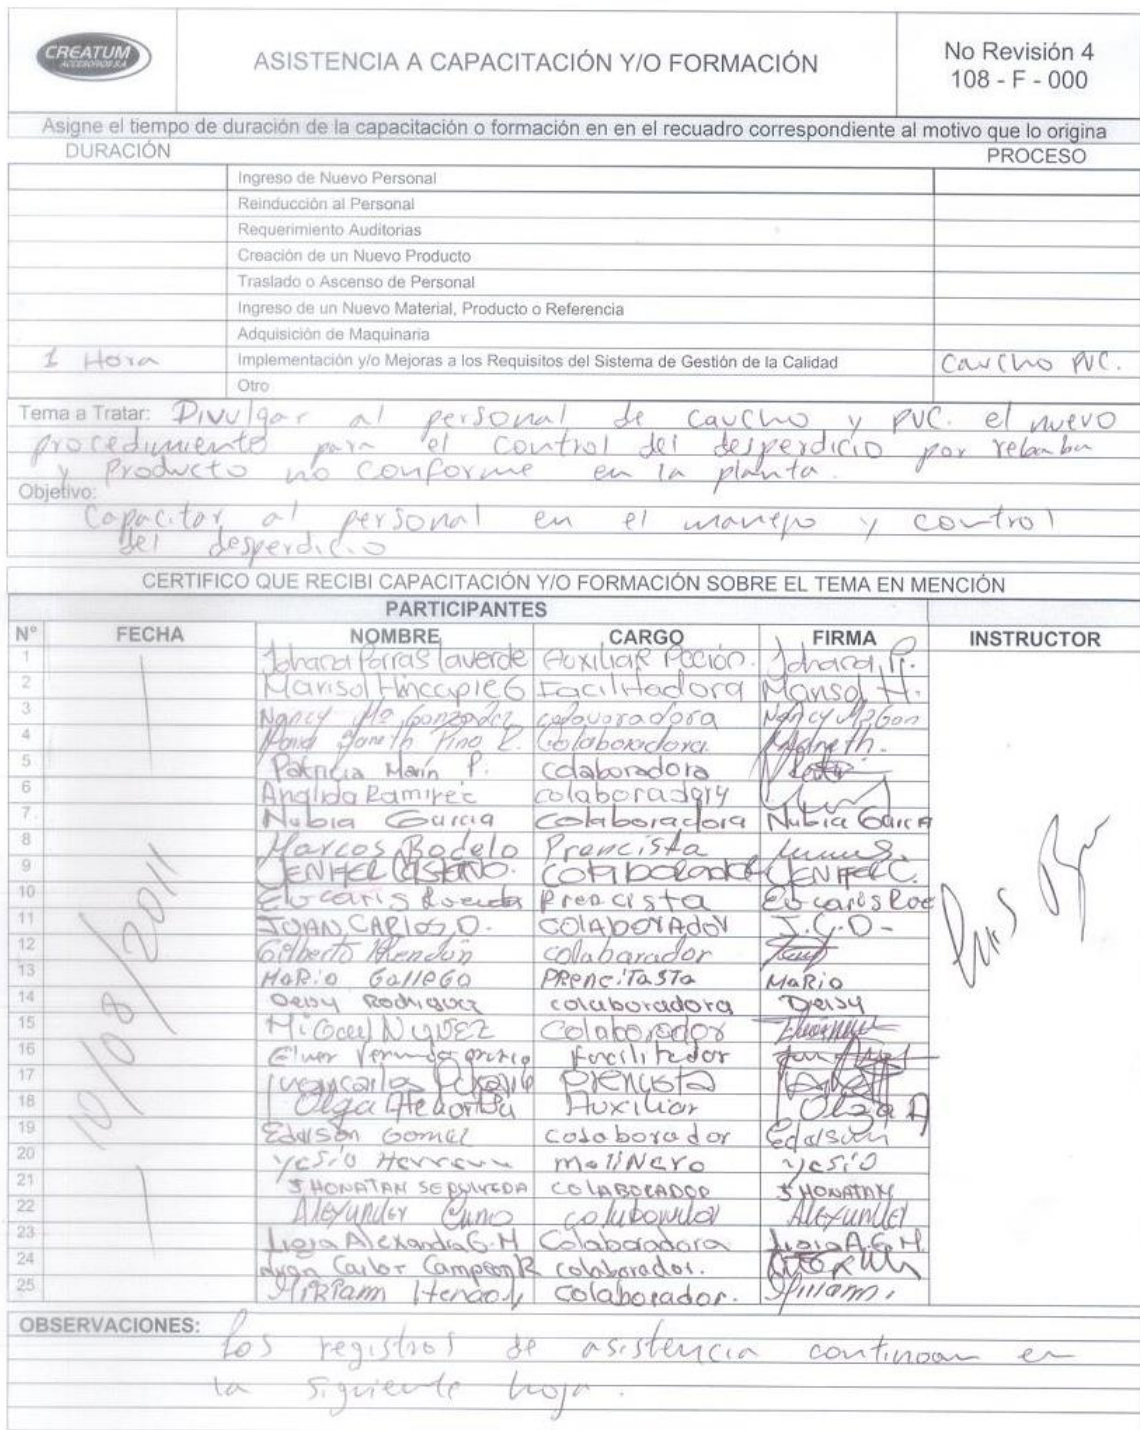 CREATUM
ACCESORIOS S.A
ASISTENCIA A CAPACITACIÓN Y/O FORMACIÓN
No Revisión 4
108 - F - 000
Asigne el tiempo de duración de la capacitación o formación en en el recuadro correspondiente al motivo que lo origina
DURACIÓN PROCESO
Ingreso de Nuevo Personal
Reinducción al Personal
Requerimiento Auditorias
Creación de un Nuevo Producto
Traslado o Ascenso de Personal
Ingreso de un Nuevo Material, Producto o Referencia
Adquisición de Maquinaria
1 Hora Implementación y/o Mejoras a los Requisitos del Sistema de Gestión de la Calidad Caucho PVC.
Otro
Tema a Tratar: Divulgar al personal de caucho y PVC. el nuevo
procedimiento para el control del desperdicio por rebaba
y Producto no conforme en la planta.
Objetivo:
Capacitar al personal en el manejo y control
del desperdicio
CERTIFICO QUE RECIBI CAPACITACIÓN Y/O FORMACIÓN SOBRE EL TEMA EN MENCIÓN
PARTICIPANTES
N° FECHA NOMBRE CARGO FIRMA INSTRUCTOR
10/08/2011
1 Johana Porras laverde Auxiliar Pcción. Johana P.
2 Marisol Hincapie G Facilitadora Marisol H.
3 Nancy Mª Gonzalez colavoradora Nancy Mª Gon
4 Janeth Pino Z. Colaboradora. Janeth.
5 Patricia Marín P. colaboradora
6 Ramirez
7 Nubia Garcia colaboradora Nubia Garcia
8 Marcos Bodelo Prencista
9 JENIFER JENIFER C.
10 Eucaris Rueda Prencista Eucaris Roe
11 JUAN CARLOS D. COlABORAdor J.C.D-
12 Gilberto Rendón colaborador
13 MaRio GaLLEGO PRENCiTaSTa MaRio
14 Deisy Rodriguez colaboradora Deisy
15 Colaborador
16 facilitador
17 prencista
18 Olga Auxiliar Olga A
19 Edalson Gomez colaborador Edalson
20 yesid Herrera moliNero yesid
21 JHONATAN SEPULVEDA COLABORADOR JHONATAN
22 Alexander colaborador Alexander
23 Ligia Alexandra G.H Colaboradora Ligia A.G.H.
24 Juan Carlos colaborador.
25 Henao colaborador.
OBSERVACIONES: los registros de asistencia continoan en
la siguiente hoja.